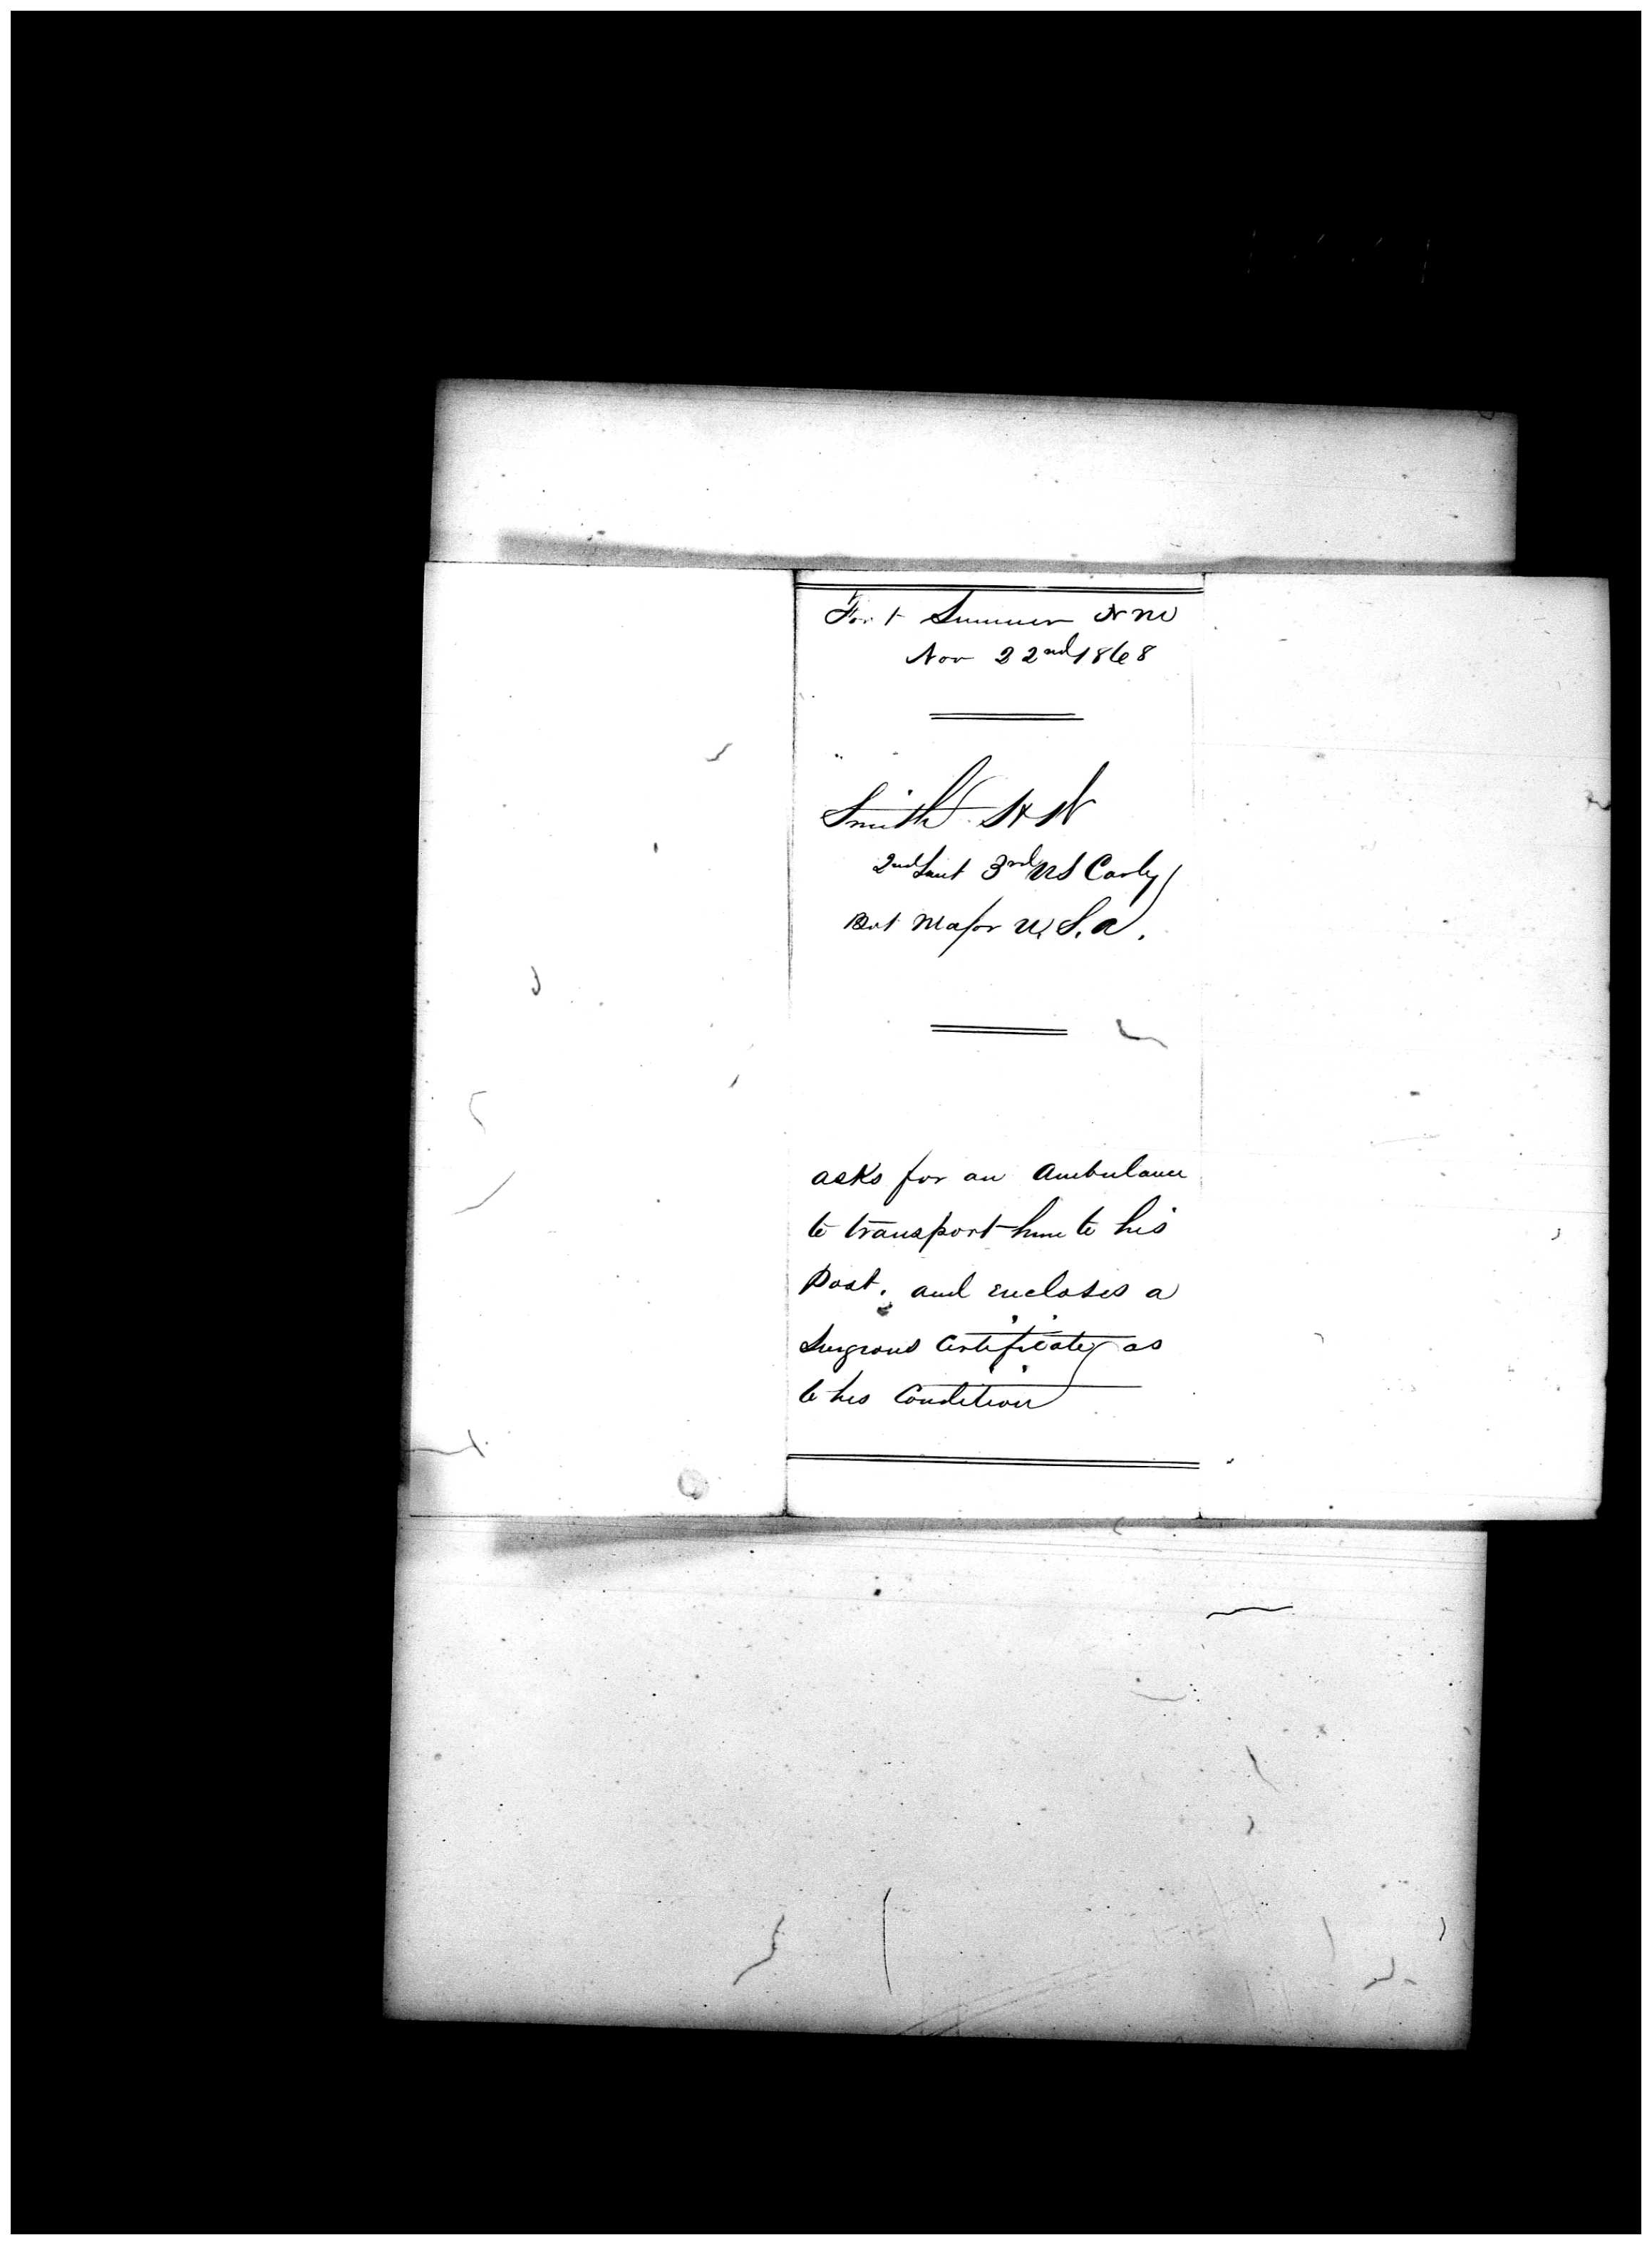 Fort Sumner N M
Nov 22nd 1868
Smith H W
2nd Lieut 3rd US Cavly
Bvt Major U. S. A.
asks for an Ambulance
to transport him to his
Post. and encloses a
Surgeons Certificate as
to his Condition